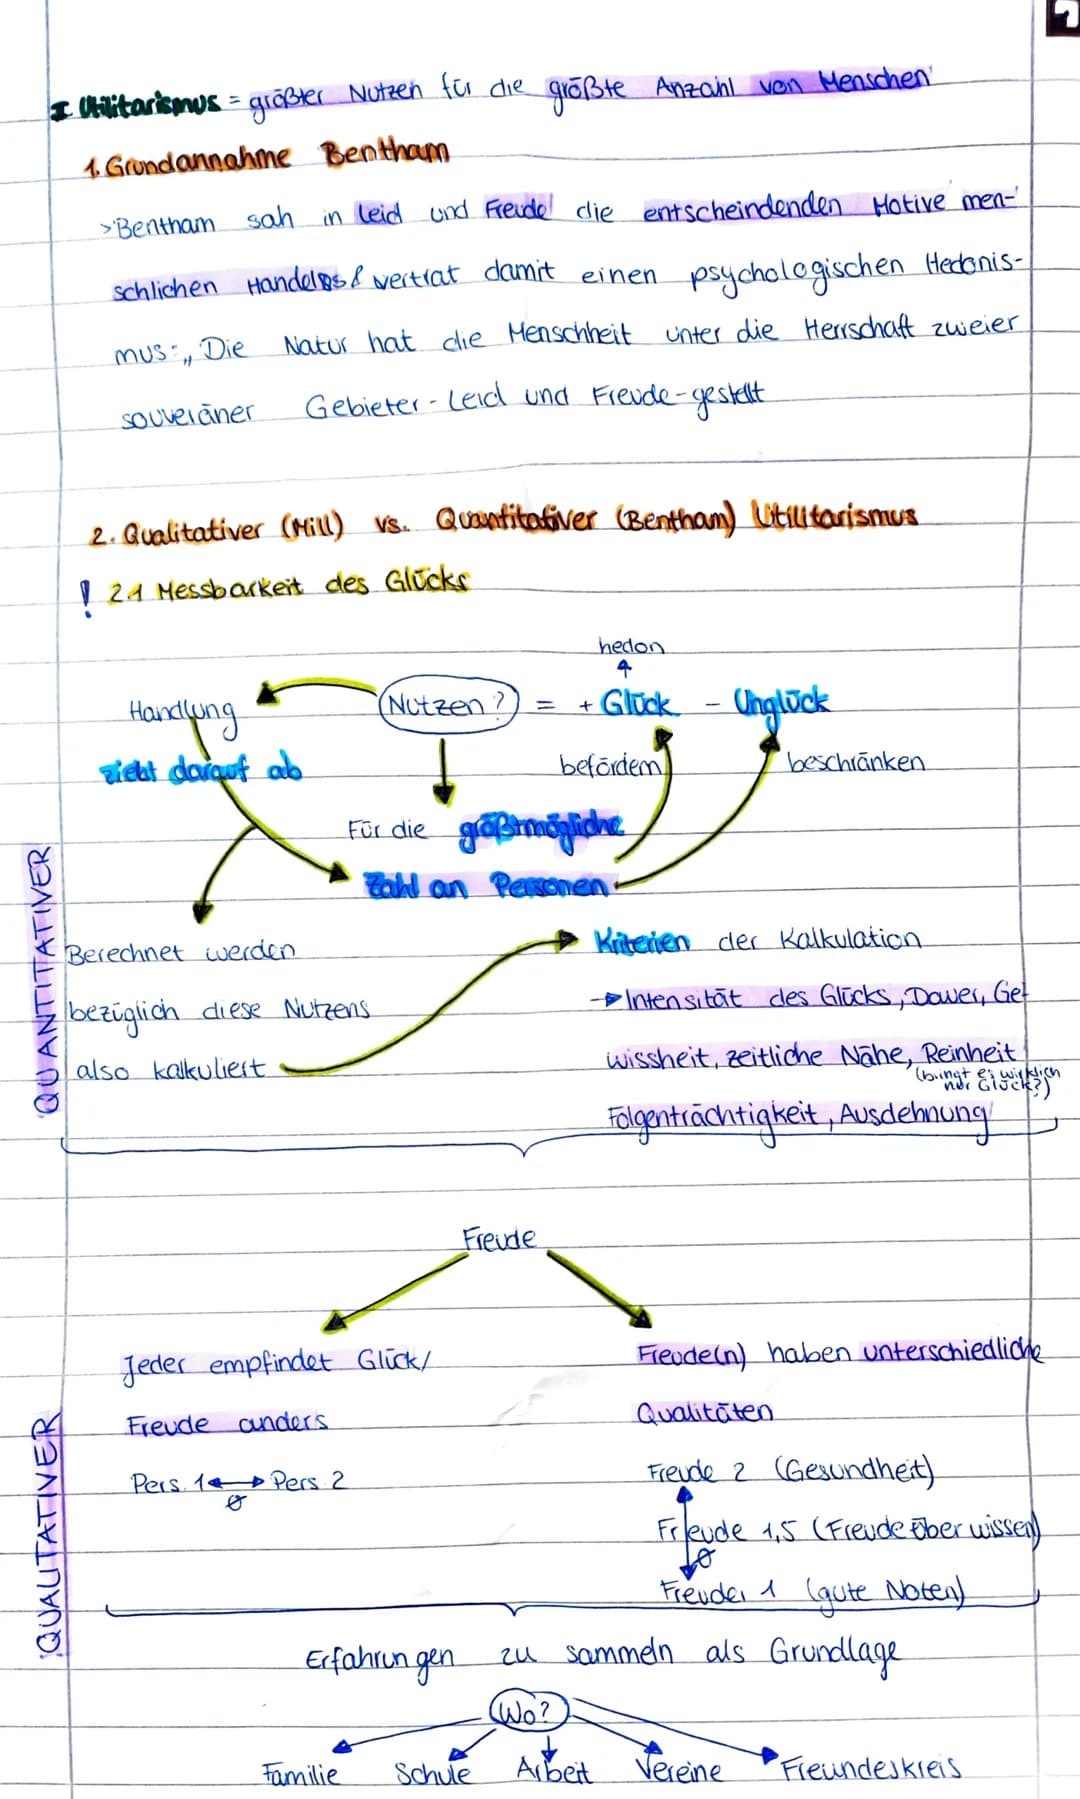 I. Utilitarismus = größter Nutzen für die größte Anzahl von Menschen
1. Grundannahme Bentham
> Bentham sah in Leid und Freude die entscheindenden Motive men-
schlichen Handelns & vertrat damit einen psychologischen Hedonis-
mus: „Die Natur hat die Menschheit unter die Herrschaft zweier
souveräner Gebieter - Leid und Freude - gestellt
2. Qualitativer (Mill) vs. Quantitativer (Bentham) Utilitarismus
! 2.1 Messbarkeit des Glücks
hedon
Handlung Nutzen? = + Glück - Unglück
zielt darauf ab befördern beschränken
Für die größtmögliche
Zahl an Personen
QUANTITATIVER
Berechnet werden Kriterien der Kalkulation
bezüglich diese Nutzens → Intensität des Glücks, Dauer, Ge-
also kalkuliert wissheit, zeitliche Nähe, Reinheit
(bringt es wirklich
nur Glück?)
Folgenträchtigkeit, Ausdehnung
Freude
Jeder empfindet Glück/ Freude(n) haben unterschiedliche
Freude anders Qualitäten
Pers. 1 ↔ Pers. 2 Freude 2 (Gesundheit)
Freude 1,5 (Freude über wissen)
Freude 1 (gute Noten)
QUALITATIVER
Erfahrungen zu sammeln als Grundlage
Wo?
Familie Schule Arbeit Vereine Freundeskreis